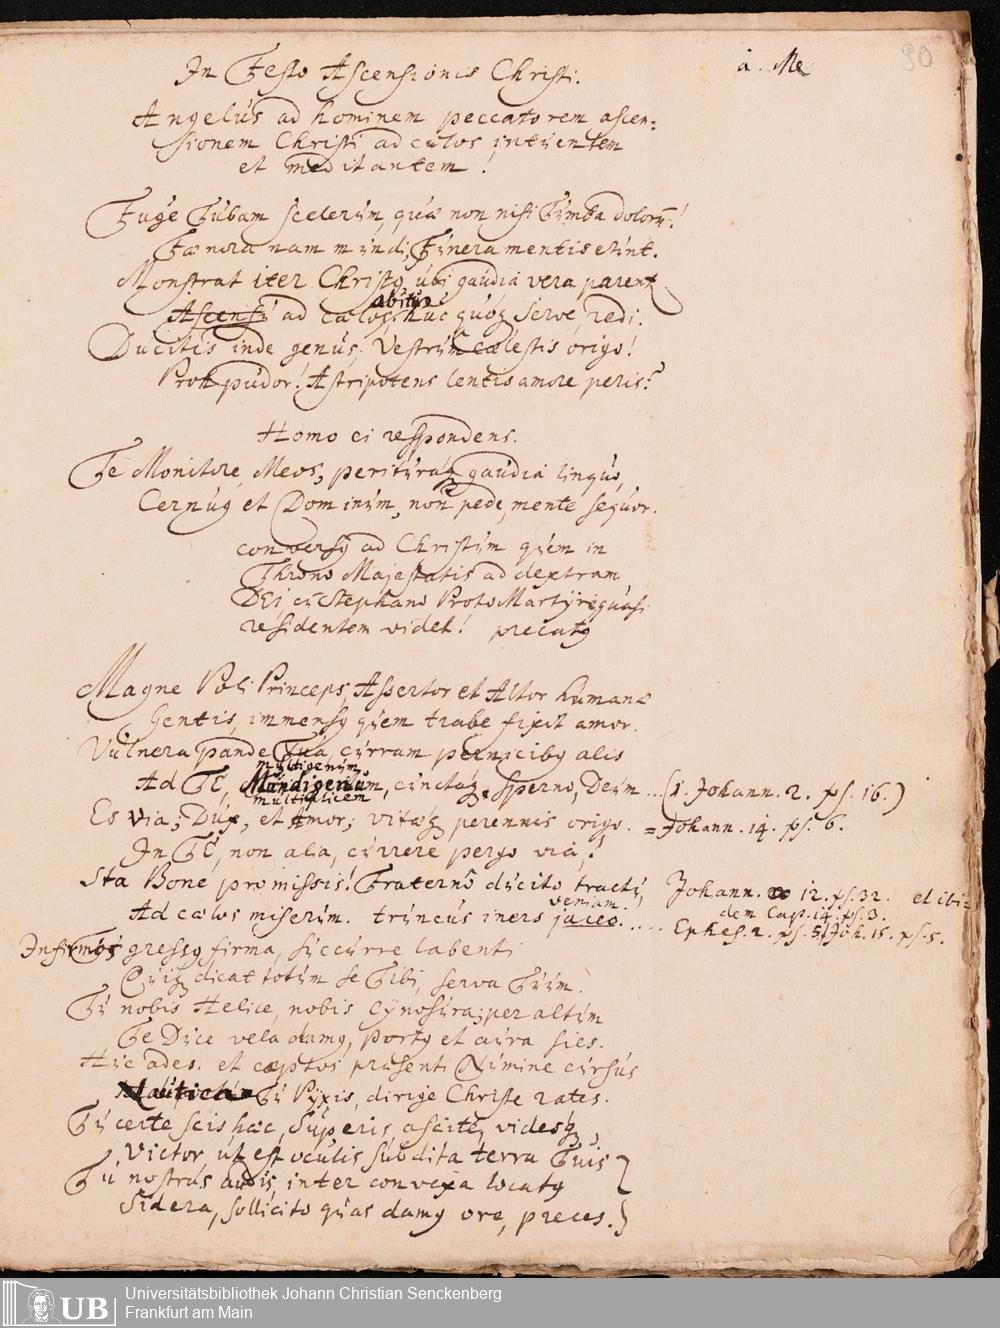 In Festo Ascensionis Christi. à. Me 90
Angelus ad hominem peccatorem ascen=
sionem Christi ad cœlos intuentem
et meditantem!
Fuge Tubam scelerum, quæ non nisi Tymba dolorū!
Fœnora nam mundi, Funera mentis erunt.
Monstrat iter Christus, ubi gaudia vera parent
abitus
Ascensu ad cœlos. huc quóq serve, redi.
Ducitis inde genus; Vestrum cœlestis origo!
Proh pudor! Astripotens lentus amore peris?
Homo ei respondens.
Te Monitore, Meos, perituraq gaudia linquo,
Cernuus et Dominum, non pede, mente sequor.
conversus ad Christum quem in
Throno Majestatis ad dextram
DEI, cū Stephano ProtoMartyre quasi
residentem videt! precatus
Magne Poli Princeps, Assertor et Altor humanæ
Gentis, immensus quem trabe fixit amor.
Vulnera pande Tua, curram pernicibus alis
multigenum
Ad TE, Mundigenum, cunctaq sperno, Deum ...(1. Johann. 2. ps. 16.)
multiplicem
Es Via; Dux, et Amor; vitæq perennis origo. = Johann. 14. ps. 6.
In TE, non, ala, currere pergo viâ!
Sta Bone promissis! Fraterno ducito tractu, Johann. 12. ps. 32. et ibi=
veniam. dem Cap. 14. ps. 3.
Ad cœlos miserum. truncus iners jaceo..... Ephes. 2. ps. 5. Joh. 15. ps. 5.
Infirmos gressus firma, succurre labenti
Quiq dicat totum se Tibi, serva Tuum.
Tu nobis Helice, nobis Cynosura; per altum
Te Duce vela damus, portus et aura sies.
Huc ades. et cœptos præsenti Numine cursus
Tu Pyxis, dirige Christe rates.
Tu certe scis hæc, superis ascite, videsq,
Victor ut est oculis subdita terra Tuis
Tu nostras audis inter convexa locatus
Sidera, sollicito quas damus ore, preces.
UB Universitätsbibliothek Johann Christian Senckenberg
Frankfurt am Main